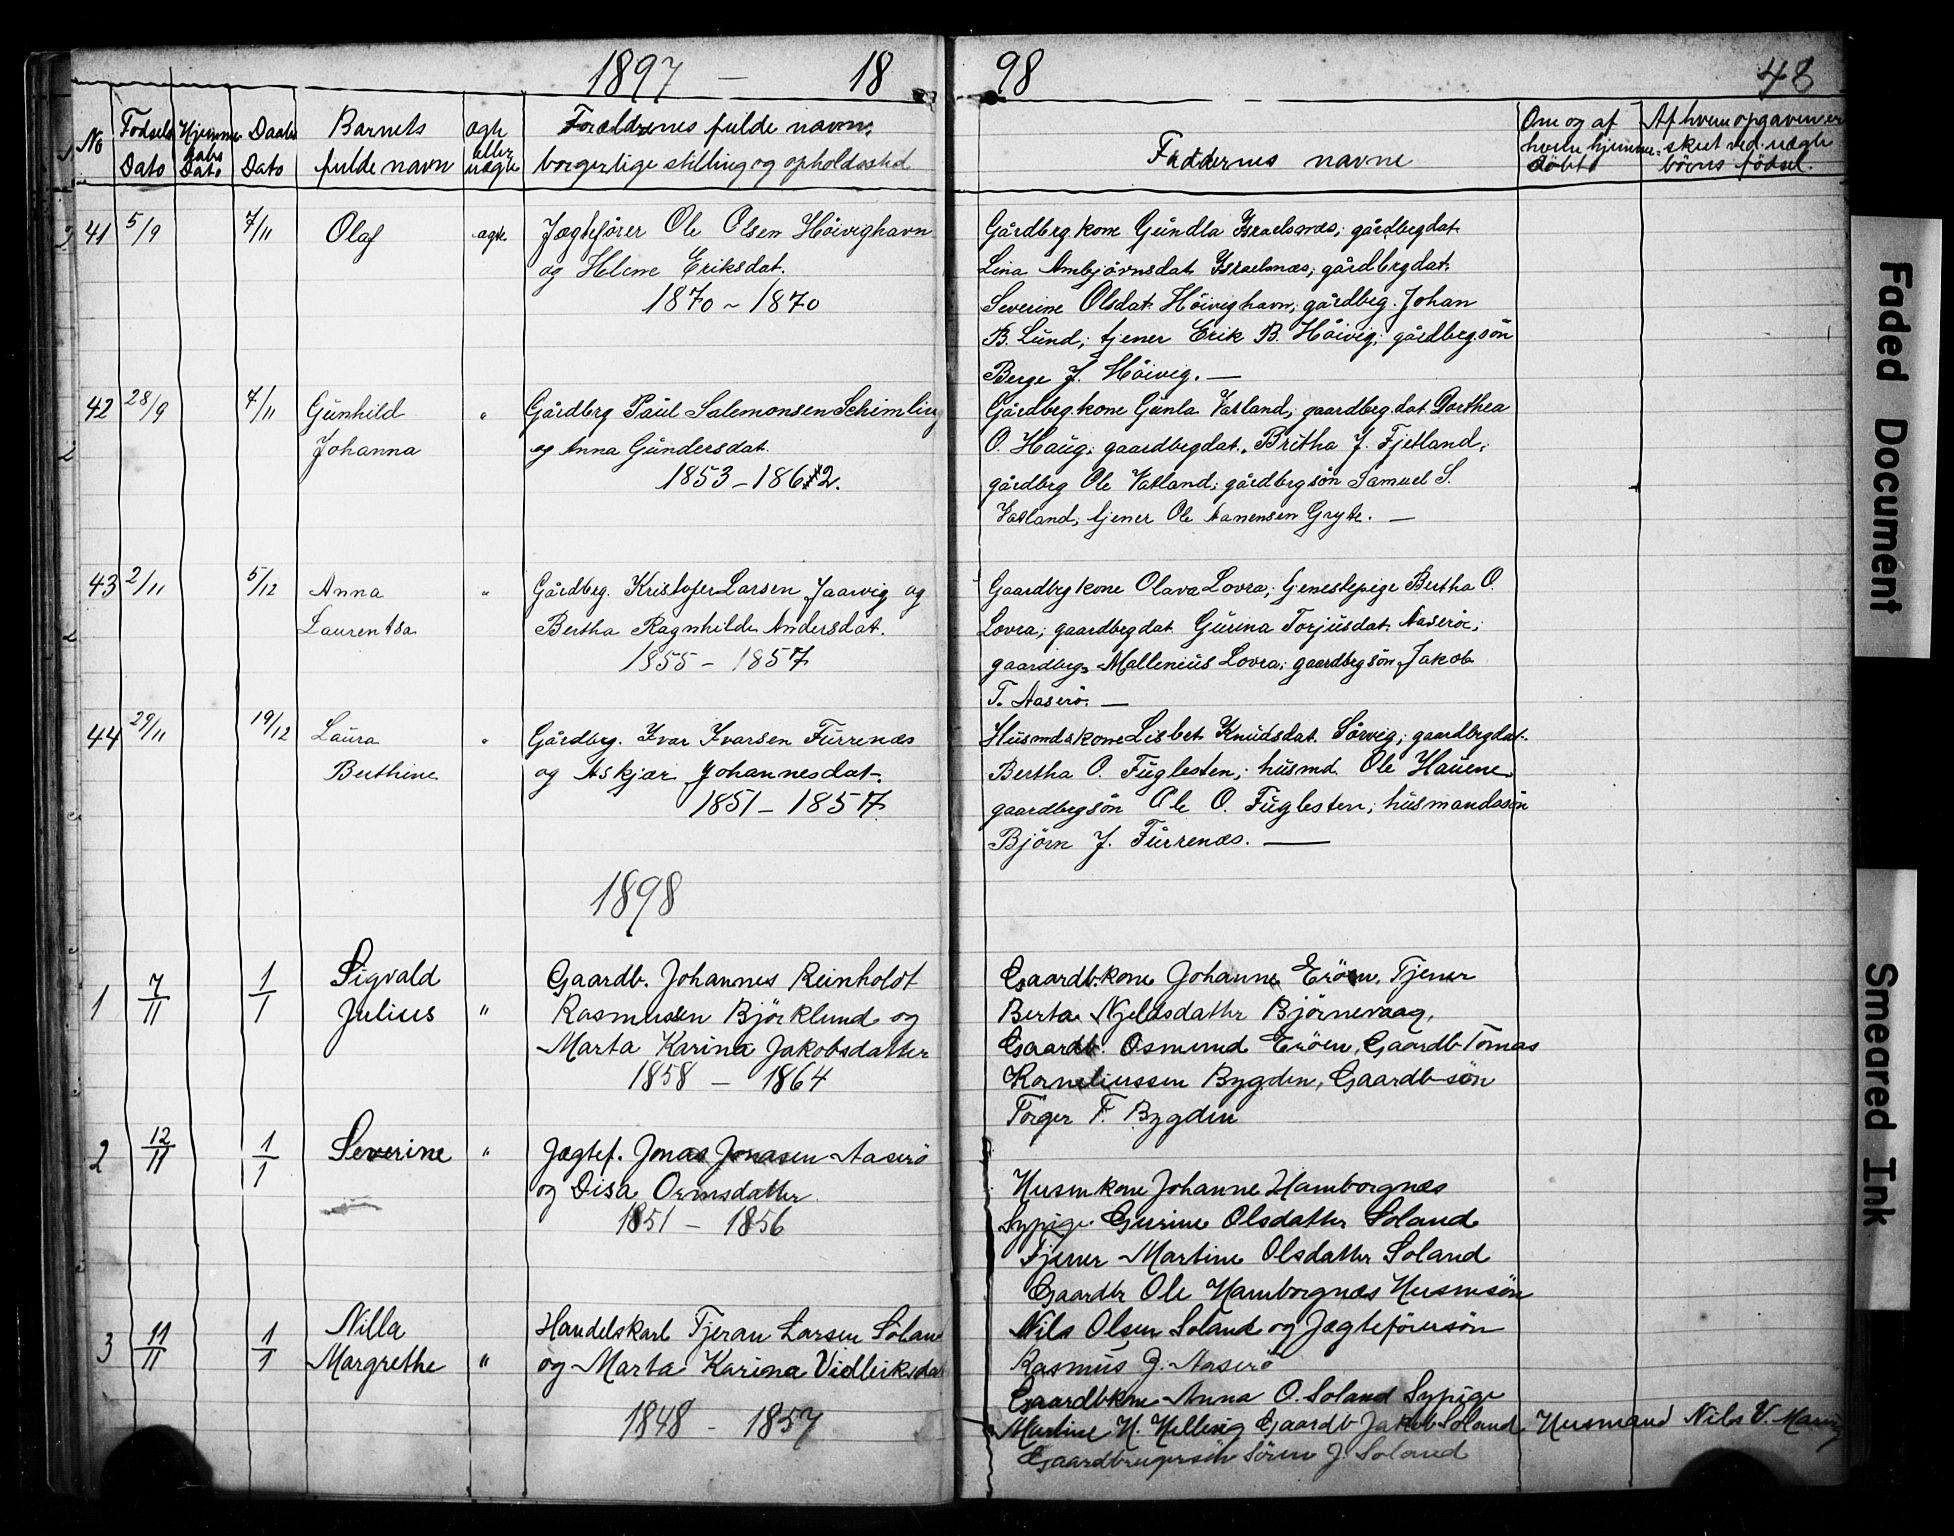 1897 — 18 98
48
No
Fødsels Dato
Hjemme daabs Dato
Daabs Dato
Barnets fulde navn
ægte eller uægte
Forældrenes fulde navn,
borgerlige stilling og opholdssted
Faddernes navne
Om og af hvem hjemme- döbt
Af hvem opgaven er skeet ved uægte börns födsel.
41 5/9 7/11 Olaf ægte Jægtefører Ole Olsen Höivighavn
og Helene Eriksdat.
1870 ~ 1870
Gårdbrg kone Gundla Israelsnæs; gårdbrgdat.
Lina Ambjörnsdat. Israelsnæs; gårdbrgdat.
Severine Olsdat. Höivighavn; gårdbrg. Johan
B. Lund; tjener Erik B. Höivig; gårdbrgsön
Berge J. Höivig. —
42 28/9 7/11 Gunhild " Gårdbrg Paul Salemonsen Schimling
Johanna og Anna Gundersdat.
1853 – 1862.
Gårdbrgkone Gunla Vatland; gaardbrg.dat. Dorthea
O. Haug; gaardbrgdat. Britha J. Fjetland;
gårdbrg Ole Vatland; gårdbrgsön Samuel S.
Vatland; tjener Ole Aanensen Gryte. —
43 2/11 5/12 Anna " Gårdbrg. Kristofer Larsen Jaarvig og
Laurentsa Bertha Ragnhilde Andersdat.
1855 – 1857
Gaardbrgkone Olava Lovra; tjenestepige Bertha O.
Lovra; gaardbrgdat. Gurina Torjusdat. Aaserö;
gaardbrg. Mallenius Lovra; gaardbrgsön Jakob
T. Aaserö. —
44 29/11 19/12 Laura " Gårdbrg. Ivar Ivarsen Furrenæs
Berthine og Askjær Johannesdat.
1851 – 1857
Husmdskone Lisbet Knudsdat. Sörvig; gaardbrgdat.
Bertha O. Fuglesten; husmd. Ole Hauene;
gaardbrgsön Ole O. Fuglesten; husmandssön
Björn J. Furrenæs. —
1898
1 7/11 1/1 Sigvald Julius " Gaardb. Johannes Reinholdt
Rasmussen Björklund og
Marta Karina Jakobsdatter
1858 – 1864
Gaardb.kone Johanne Eröen, Tjener
Berta Njeldsdatter Björnevaag,
Gaardb. Osmund Eröen, Gaardb Tomas
Korneliussen Bygden, Gaardb-sön
Törger T. Bygden
2 12/11 1/1 Severine " Jægtef. Jonas Jonasen Aaserö
og Disa Ormsdatter
1851 – 1856
Husmkone Johanne Hamborgnæs
Sypige Gurine Olsdatter Soland
Tjener Martine Olsdatter Soland
Gaardbr Ole Hamborgnæs Husmsön
Nils Olsen Soland og Jægteförersön
Rasmus J. Aaserö
3 11/11 1/1 Nilla Margrethe " Handelskarl Tjeran Larsen Solan
og Marta Karina Vidleiksda
1848 – 1857
Gaardbkone Anna O. Soland Sypige
Martine N. Helling Gaardb Jakob Soland Husmand Nils V.
Gaardbrugersön Sören J. Soland
Faded Document
Smeared Ink